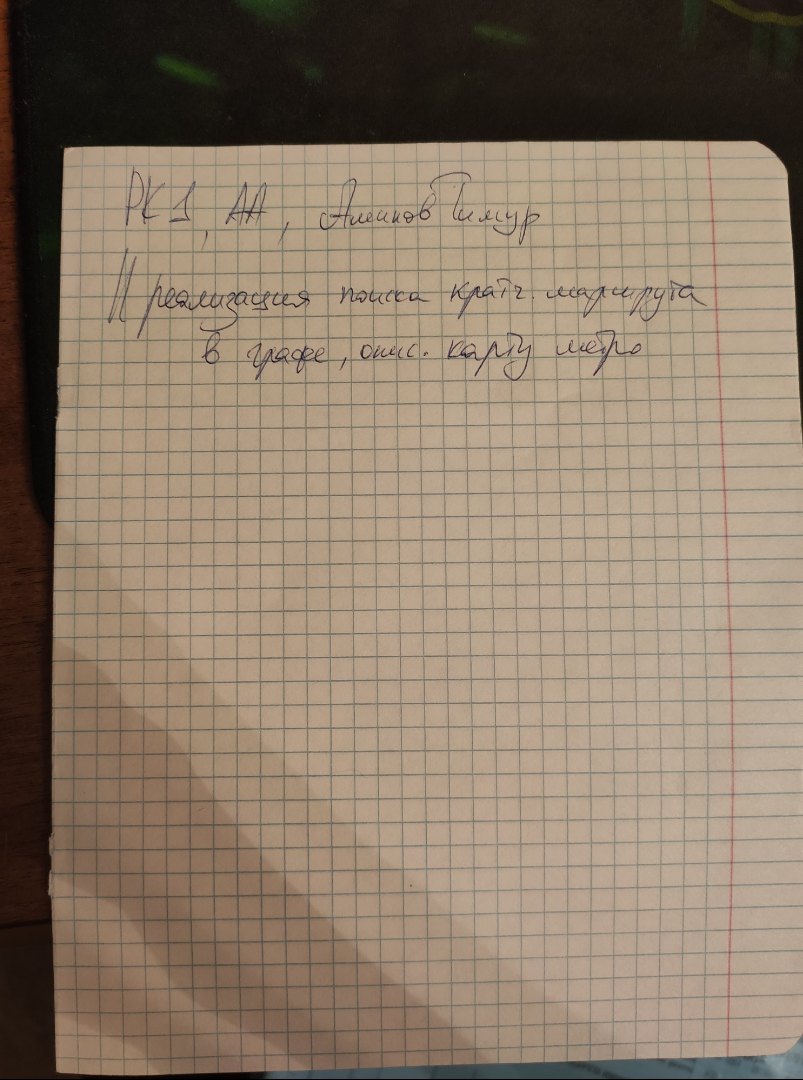 РК1, АА, Аминов Тимур
|| реализация поиска кратч. маршрута
в графе, опис. карту метро